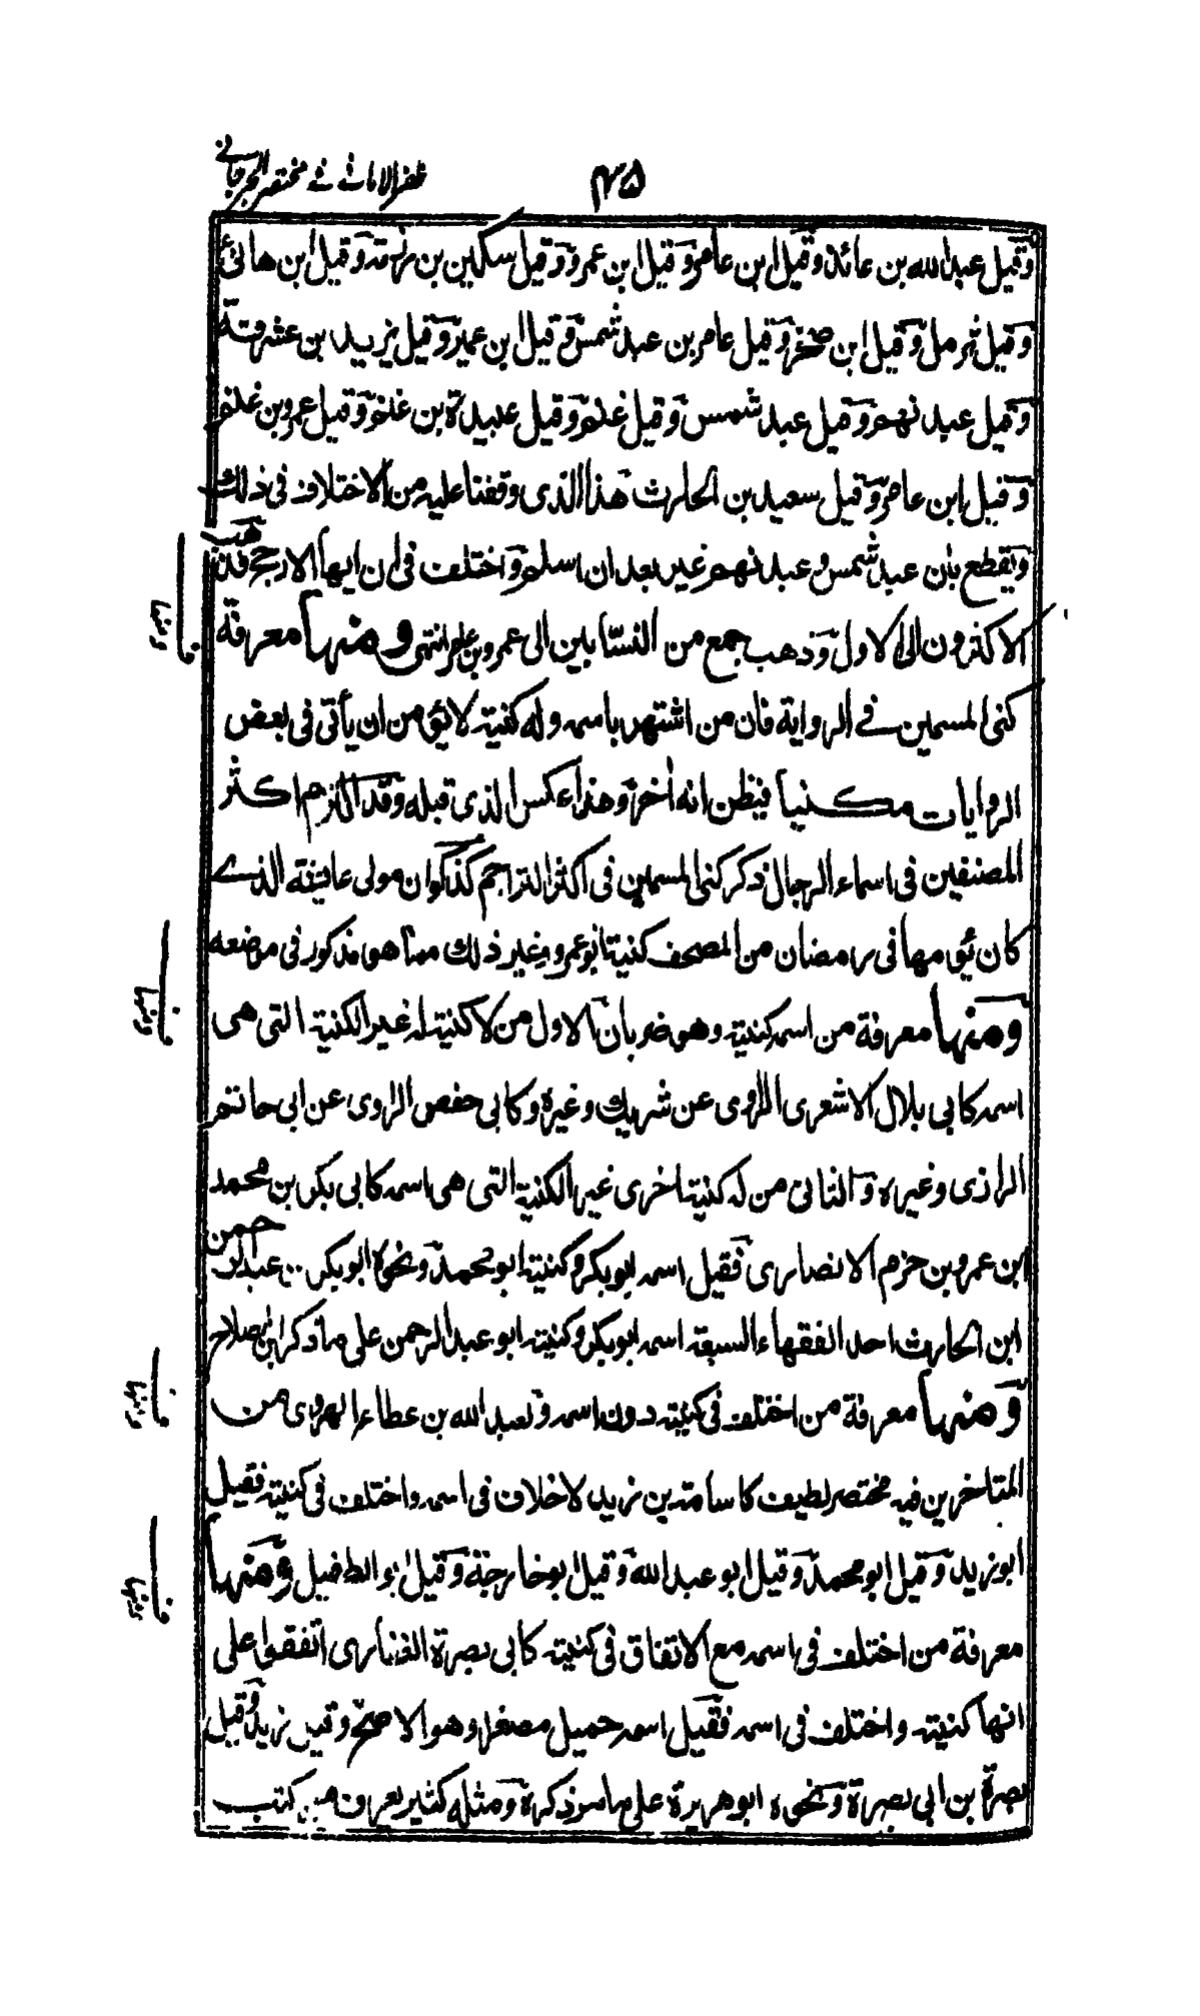 ظفر الاماني في مختصر الجرجاني
وقيل عبد الله بن عائذ وقيل ابن عامر وقيل ابن عمرو وقيل سكين بن رزمة وقيل ابن هانئ
وقيل ثرمل وقيل ابن صخر وقيل عامر بن عبد شمس وقيل ابن عمير وقيل يزيد بن عشرقة
وقيل عبد نهم وقيل عبد شمس وقيل غنم وقيل عبيدة بن غنم وقيل عمرو بن غنم
وقيل ابن عامر وقيل سعيد بن الحارث هذا الذى وقفنا عليه من الاختلاف فى ذلك
ويقطع بان عبد شمس وعبد نهم غير بعد ان اسلم واختلف فى ان ايها الارجح فذهب
الاكثرون الى الاول وذهب جمع من النسّابين الى عمرو بن عامر انتهى ومنها معرفة
كنى المسمين فے الرواية فان من اشتهر باسمه وله كنية لا يؤمن ان يأتى فى بعض
الروايات مكنيا فيظن انه اٰخر وهذا عكس الذى قبله وقد التزم اكثر
المصنفين فى اسماء الرجال ذكر كنى المسمين فى اكثر التراجم كذكوان مولى عايشة الذے
كان يؤمها فى رمضان من المصحف كنيته ابو عمرو وغير ذلك مما هو مذكور فى موضعه
ومنها معرفة من اسمه كنيته وهو ضربان الاول من لا كنية له غير الكنية التى هى
اسمه كابى بلال الاشعرى الراوى عن شريك وغيره وكابى حفص الراوى عن ابى حاتم
الرازى وغيره والثانى من له كنية اخرى غير الكنية التى هى اسمه كابى بكر بن محمد
ابن عمرو بن حزم الانصارى فقيل اسمه ابو بكر وكنيته ابو محمد ونحوه ابو بكر بن عبد الرحمن
ابن الحارث احد الفقهاء السبعة اسمه ابو بكر وكنيته ابو عبد الرحمن على ما ذكر ابن الصلاح
ومنها معرفة من اختلف فى كنيته دون اسمه ولعبد الله بن عطاء الهروى من
المتاخرين فيه مختصر لطيف كاسامة بن زيد لا خلاف فى اسمه واختلف فى كنيته فقيل
ابو زيد وقيل ابو محمد وقيل ابو عبد الله وقيل ابو خارجة وقيل ابو الطفيل ومنها
معرفة من اختلف فى اسمه مع الاتفاق فى كنيته كابى بصرة الغفارى اتفقوا على
انها كنيته واختلف فى اسمه فقيل اسمه حميل مصغرا وهو الاصح وقيل زيد وقيل
بصرة بن ابى بصرة ونحوه ابو هريرة على ما مر ذكره ومثله كثير يعرف من كتب
ف ومنها
ف ومنها
ف ومنها
ف ومنها